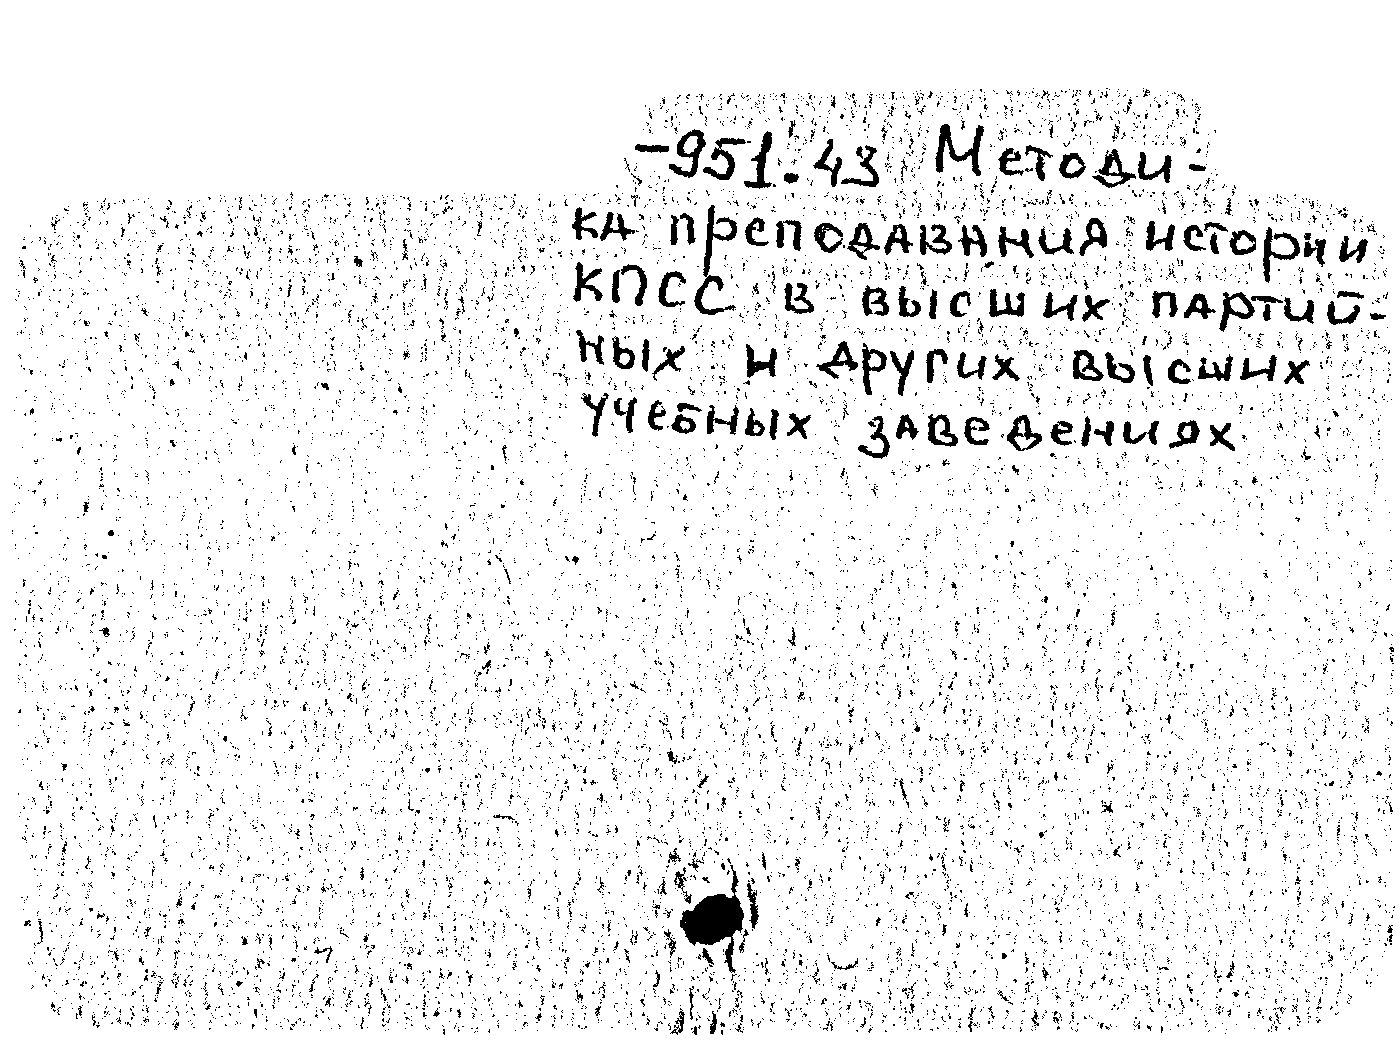 -951.43 Методи-
ка преподавания истории
КПСС в высших партий-
ных и других высших
учебных заведениях